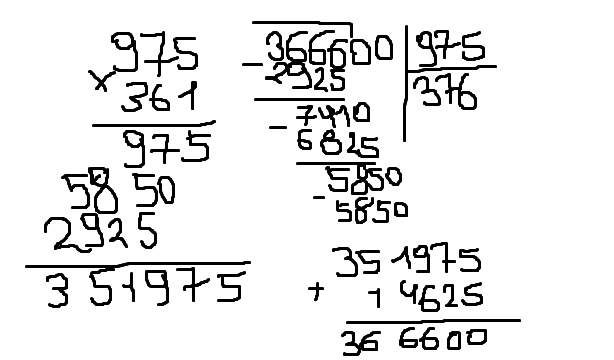 975
× 361
975
5850
2925
351975
- 366600 | 975
2925 | 376
- 7410
6825
- 5850
5850
351975
+ 14625
366600